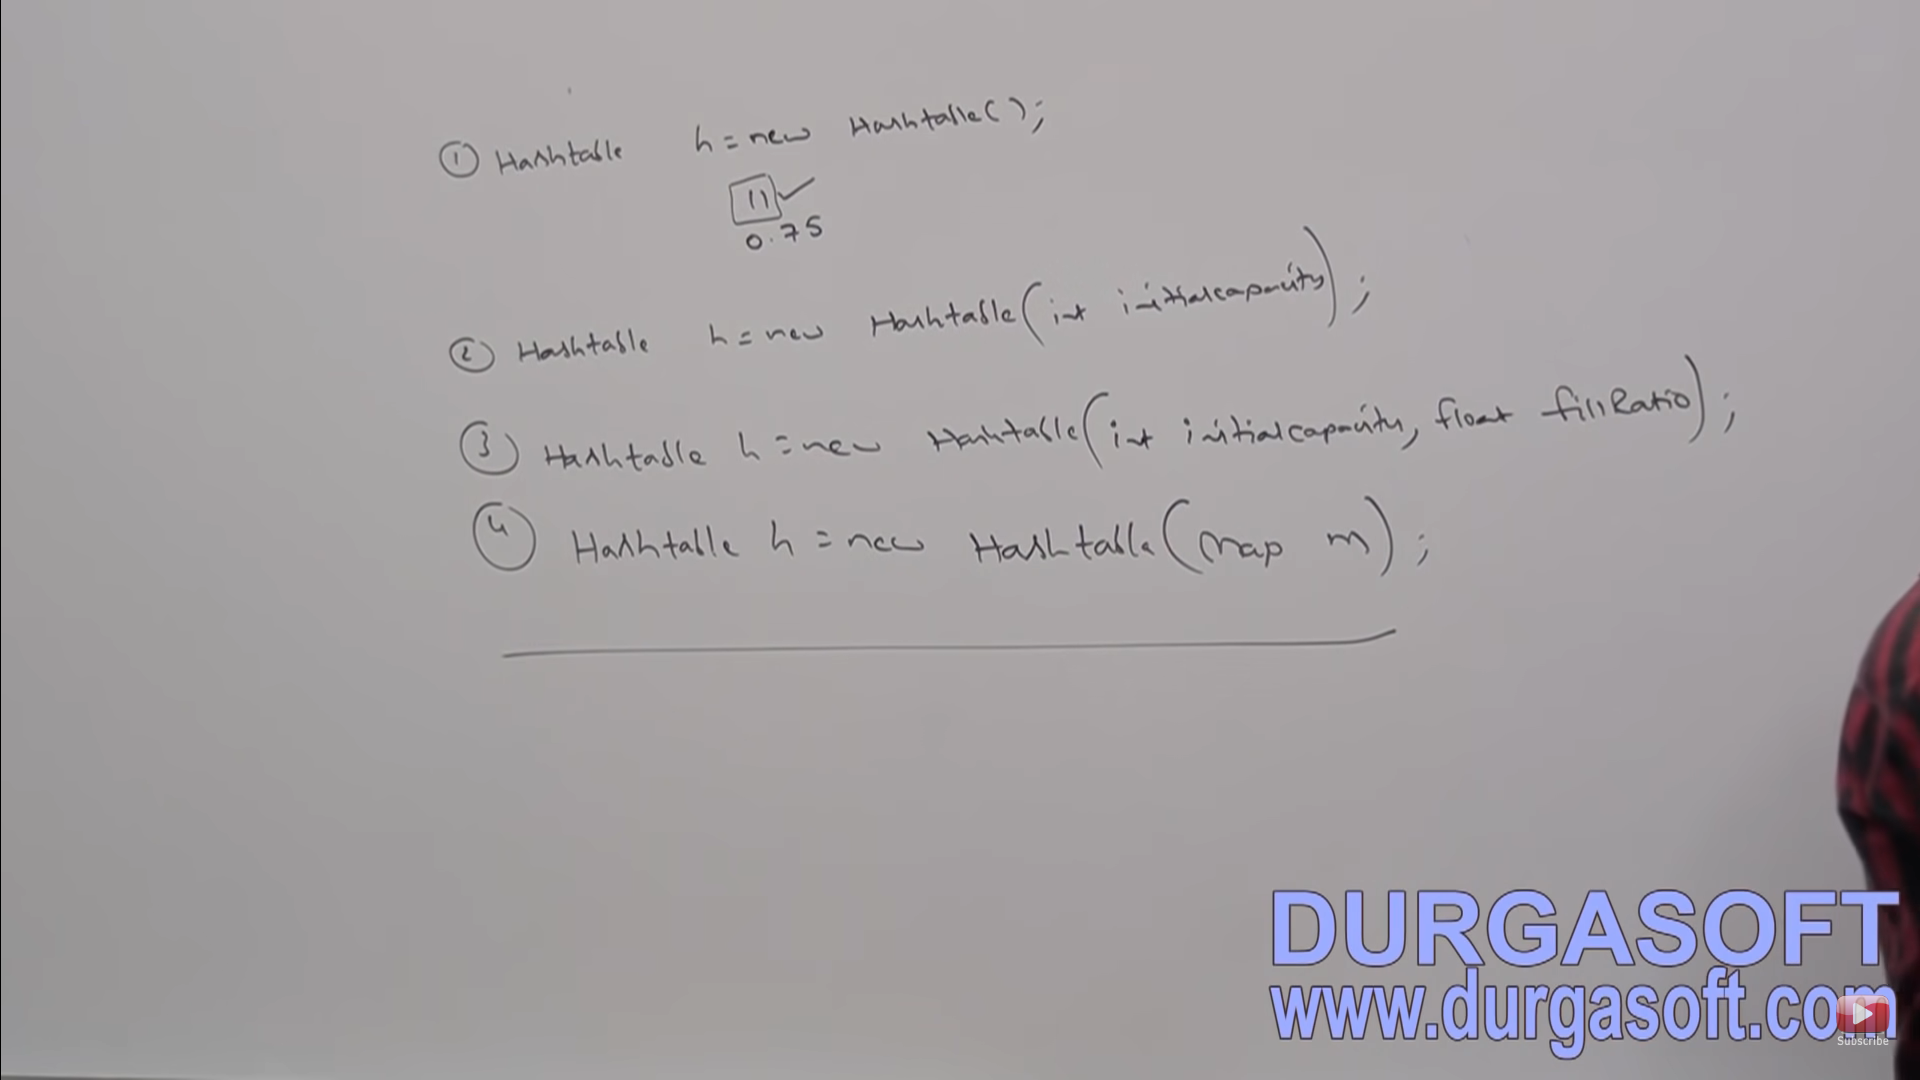 ① Hashtable h = new Hashtable();
11 ✓
0.75
② Hashtable h = new Hashtable(int initialcapacity);
③ Hashtable h = new Hashtable(int initialcapacity, float fillRatio);
④ Hashtable h = new Hashtable(Map m);
DURGASOFT
www.durgasoft.com
Subscribe